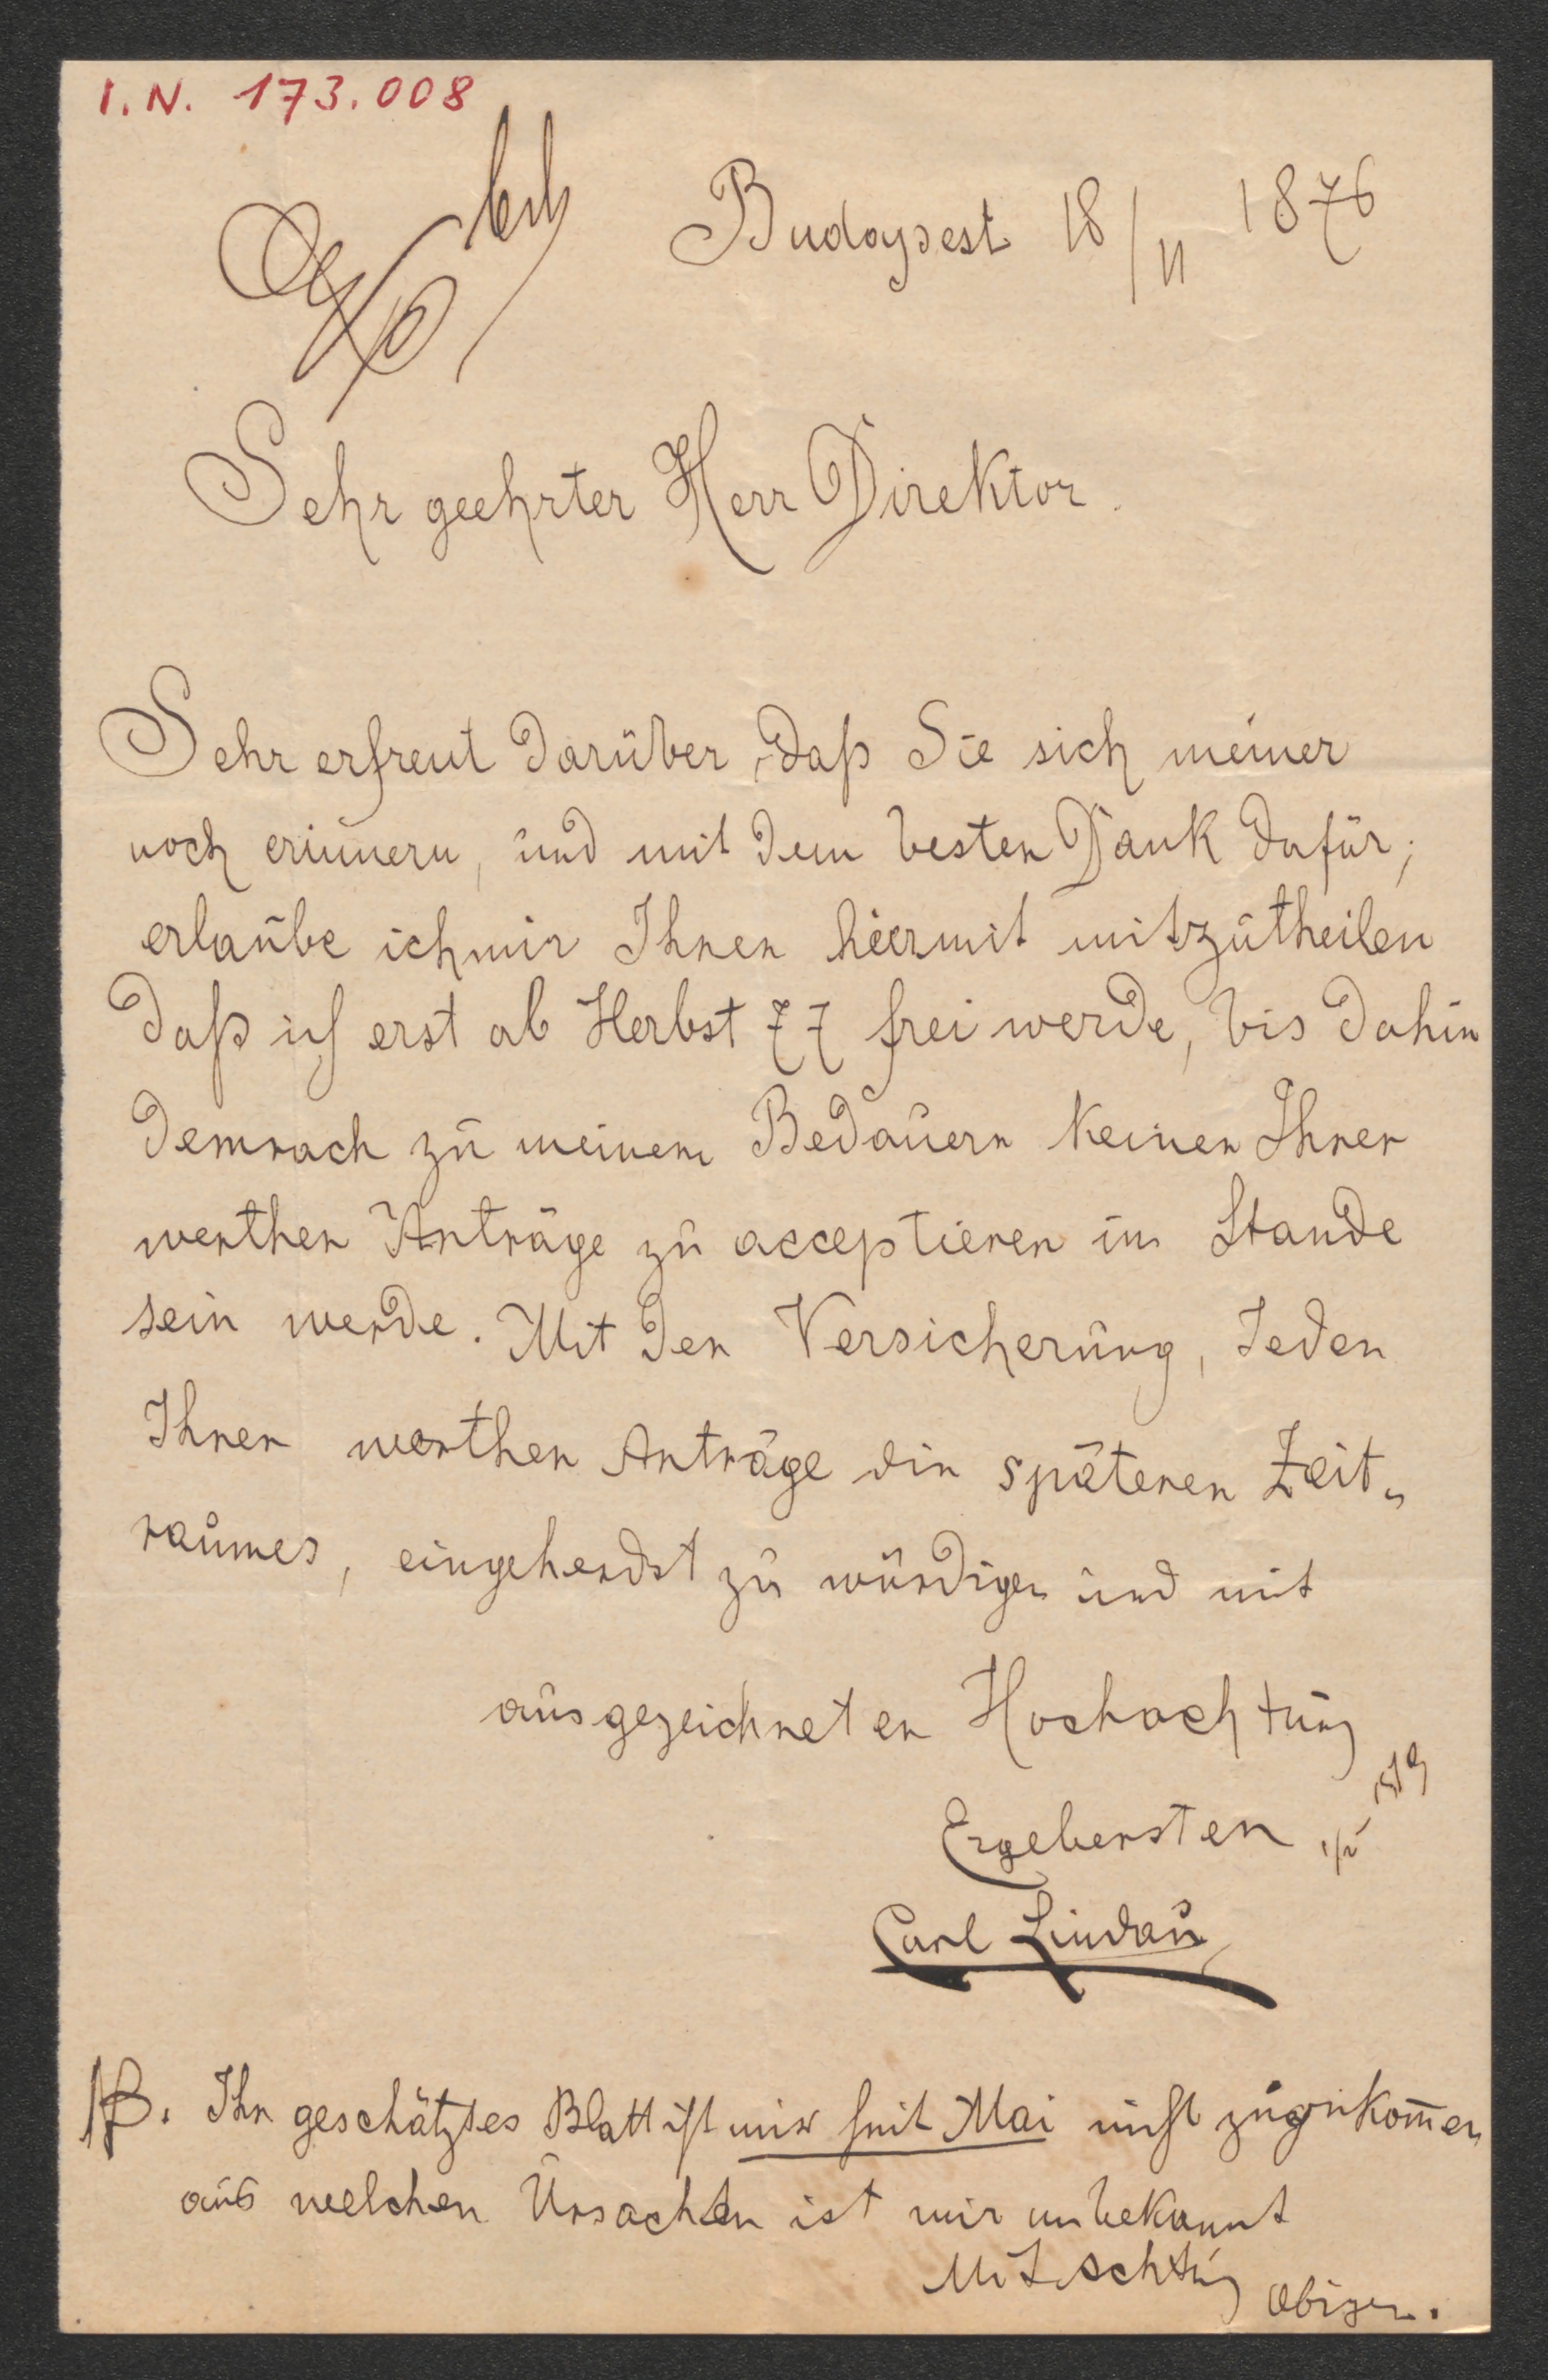 I. N. 173.008
Budapest 18/11 1876
Sehr geehrter Herr Direktor.
Sehr erfreut darüber, daß Sie sich meiner
noch erinnern, und mit dem besten Dank dafür;
erlaube ich mir Ihnen hiermit mitzutheilen
daß ich erst ab Herbst 77 frei werde, bis dahin
demnach zu meinem Bedauern keinen Ihrer
werthen Anträge zu acceptieren im Stande
sein werde. Mit der Versicherung, jeden
Ihrer werthen Anträge späteren Zeit„
raumes, eingehendst zu würdigen und mit
ausgezeichneter Hochachtung
Ergebensten
Carl Lindau
NB. Ihr geschätztes Blatt ist mir seit Mai nicht zugekom̅en
aus welchen Ursachen ist mir unbekannt
Mit Achtung Obiger.